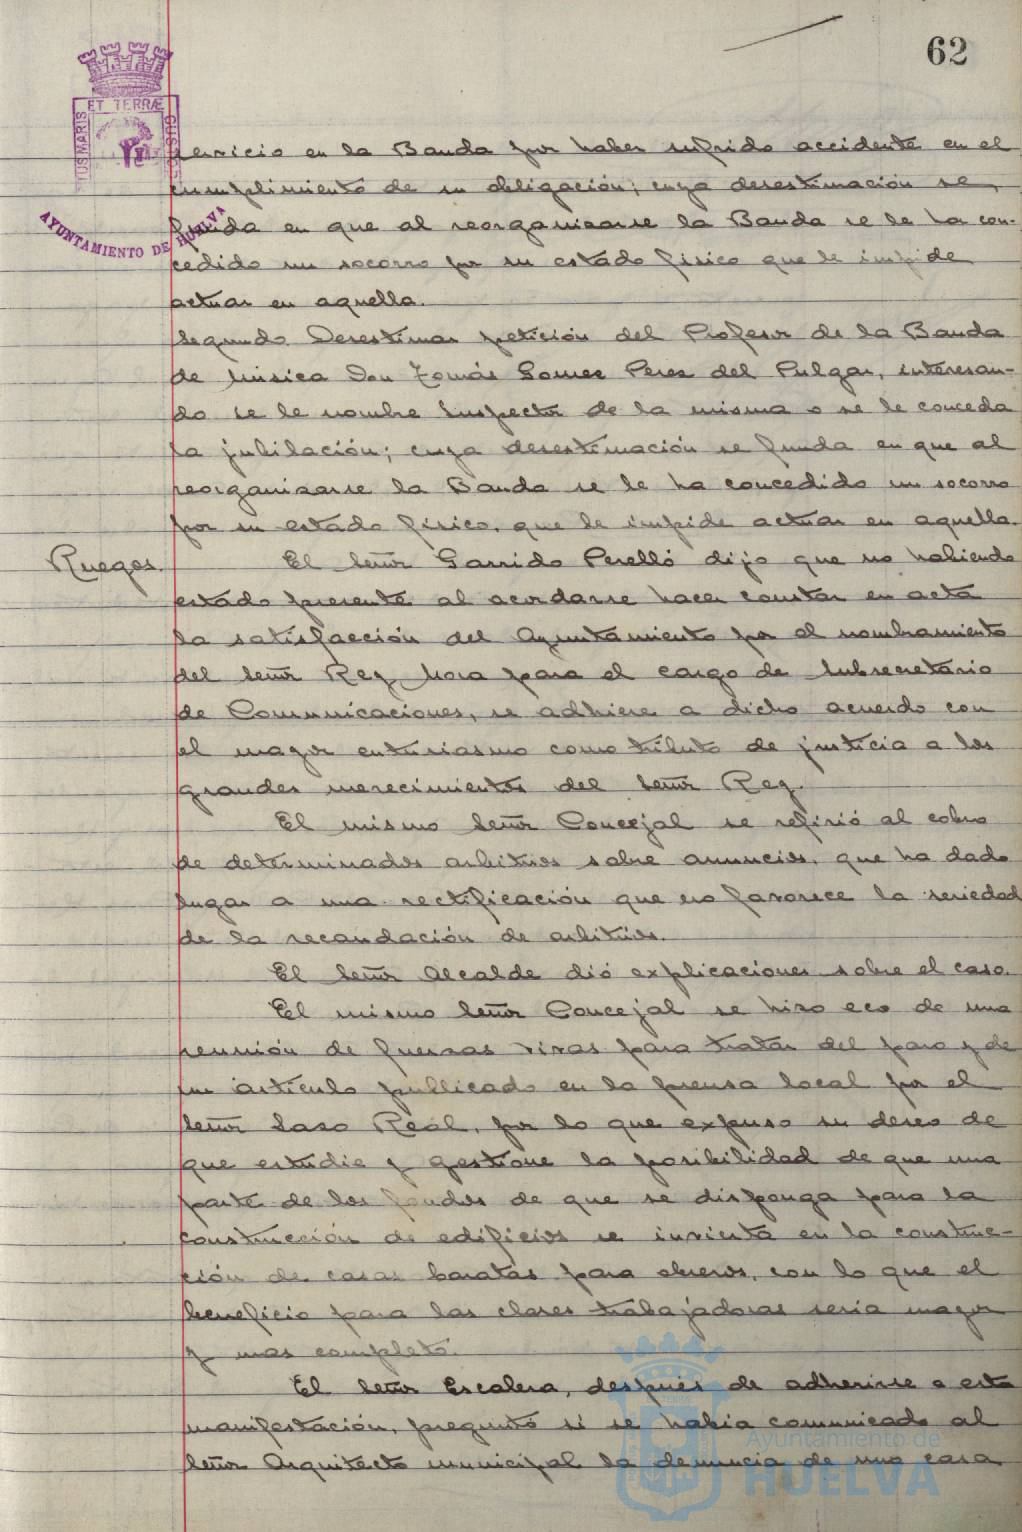 62
PORTUS MARIS ET TERRÆ CUSTODIA
AYUNTAMIENTO DE HUELVA
servicio en la Banda por haber sufrido accidente en el
cumplimiento de su obligación; cuya desestimación se
funda en que al reorganizarse la Banda se le ha con-
cedido un socorro por su estado físico que le impide
actuar en aquella.
Segundo. Desestimar petición del Profesor de la Banda
de Música Don Tomás Gomez Perez del Pulgar, interesan-
do se le nombre Inspector de la misma o se le conceda
la jubilación; cuya desestimación se funda en que al
reorganizarse la Banda se le ha concedido un socorro
por su estado físico, que le impide actuar en aquella.
Ruegos.
El Señor Garrido Perelló dijo que no habiendo
estado presente al acordarse hacer constar en acta
la satisfacción del Ayuntamiento por el nombramiento
del Señor Rey Mora para el cargo de Subsecretario
de Comunicaciones, se adhiere a dicho acuerdo con
el mayor entusiasmo como tributo de justicia a los
grandes merecimientos del Señor Rey.
El mismo Señor Concejal se refirió al cobro
de determinados arbitrios sobre anuncios, que ha dado
lugar a una rectificación que no favorece la seriedad
de la recaudación de arbitrios.
El Señor Alcalde dió explicaciones sobre el caso.
El mismo Señor Concejal se hizo eco de una
reunión de fuerzas vivas para tratar del paro y de
un artículo publicado en la prensa local por el
Señor Laso Real, por lo que expuso su deseo de
que estudie y gestione la posibilidad de que una
parte de los fondos de que se disponga para la
construcción de edificios se invierta en la construc-
ción de casas baratas para obreros, con lo que el
beneficio para las clases trabajadoras sería mayor
y mas completo.
El Señor Escalera, después de adherirse a esta
manifestación, preguntó si se había comunicado al
Señor Arquitecto municipal la denuncia de una casa
Ayuntamiento de
HUELVA